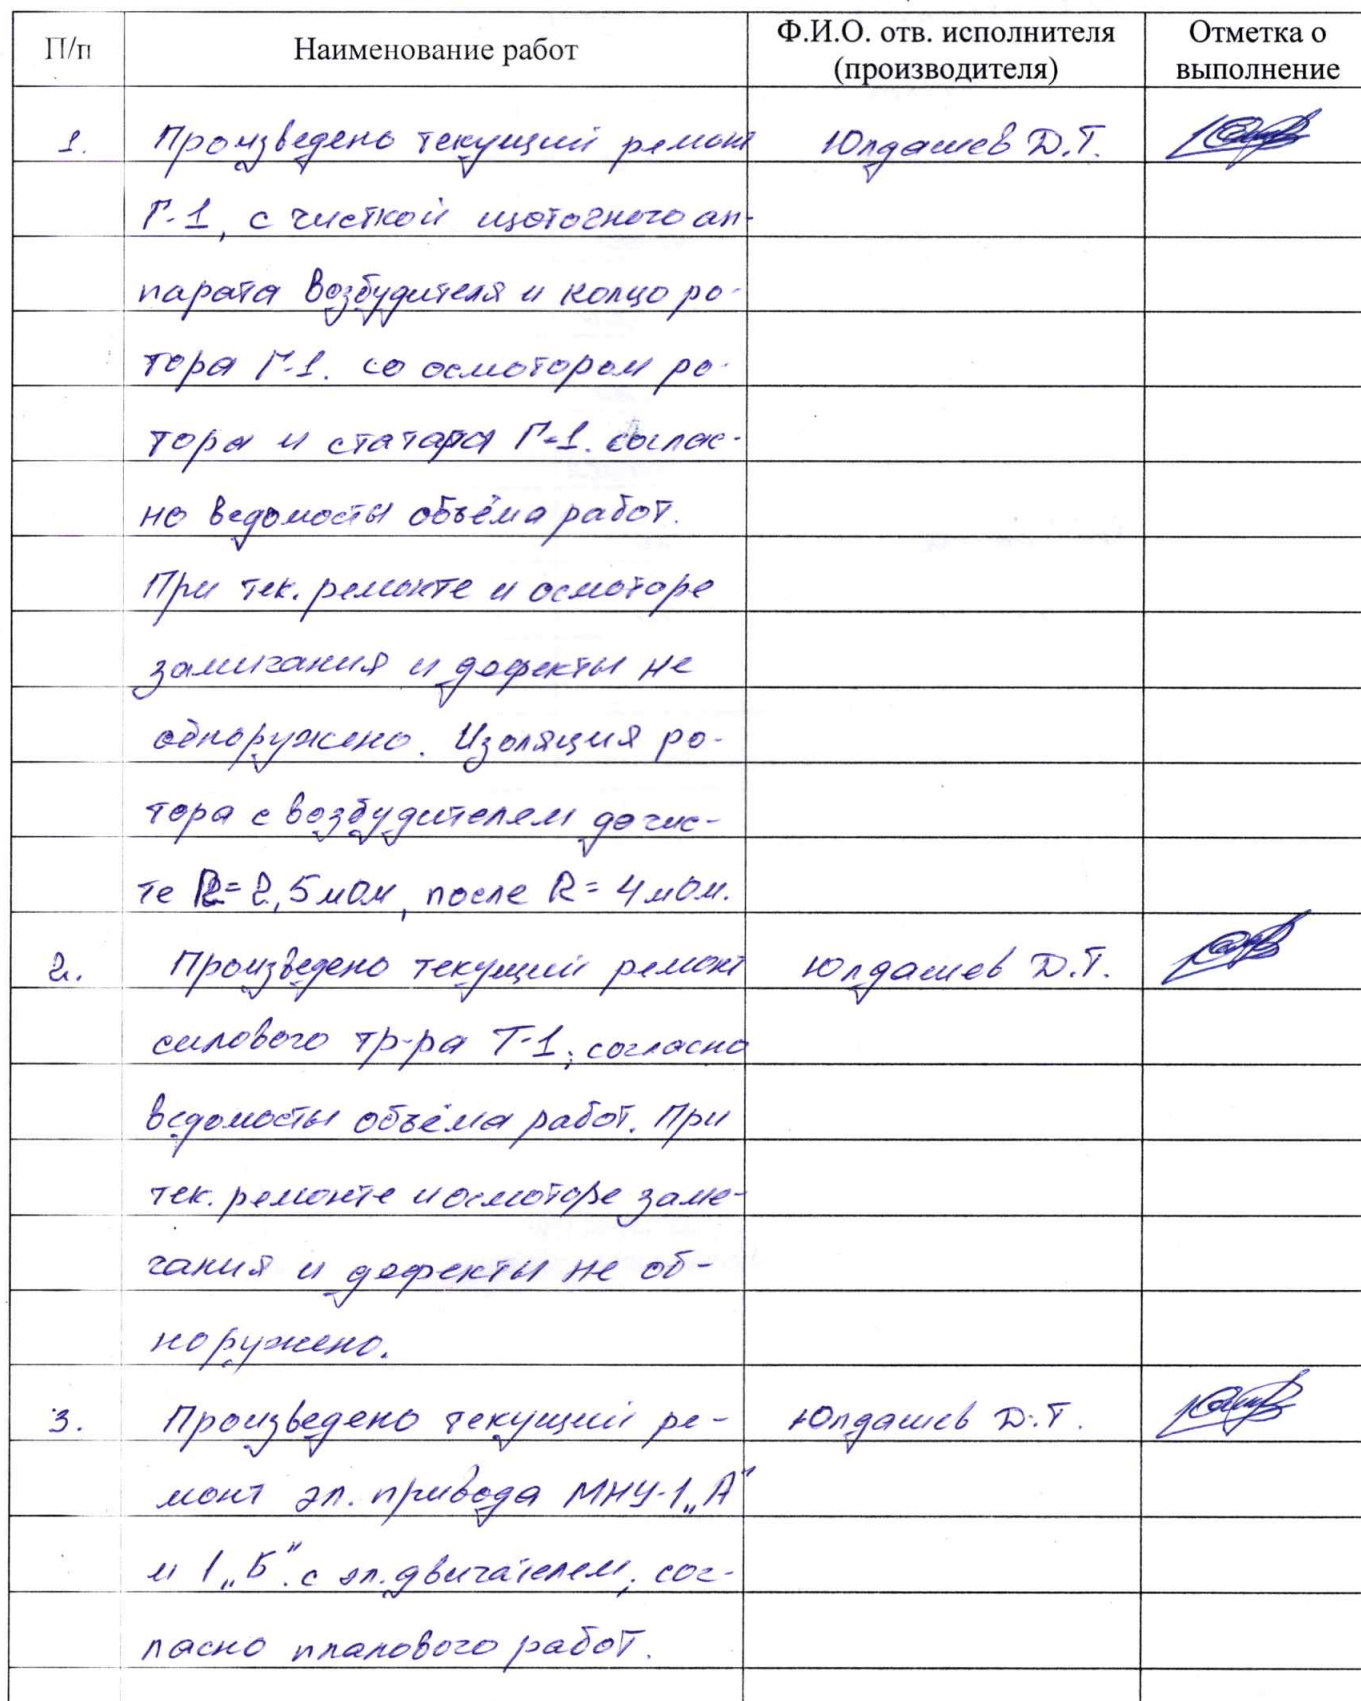 П/п Наименование работ Ф.И.О. отв. исполнителя (производителя) Отметка о выполнение
1. Произведено текущий ремонт Юлдашев Д.Т.
Г-1, с чисткой щоточного ап-
парата возбудителя и колцо ро-
тора Г-1. со осмотором ро-
тора и статара Г-1. соглас-
но ведомосты объёма работ.
При тек. ремонте и осмоторе
замичания и дефекты не
обноружено. Изоляция ро-
тора с возбудителем до чис-
те R=2,5 мОм, после R= 4 мОм.
2. Произведено текущий ремонт Юлдашев Д.Т.
силового тр-ра Т-1, согласно
ведомосты объёма работ. При
тек. ремонте и осмоторе заме-
чания и дефекты не об-
норужено.
3. Произведено текущий ре- Юлдашев Д.Т.
монт эл. привода МНУ-1„А"
и 1„Б". с эл. двигателем, сог-
ласно планового работ.